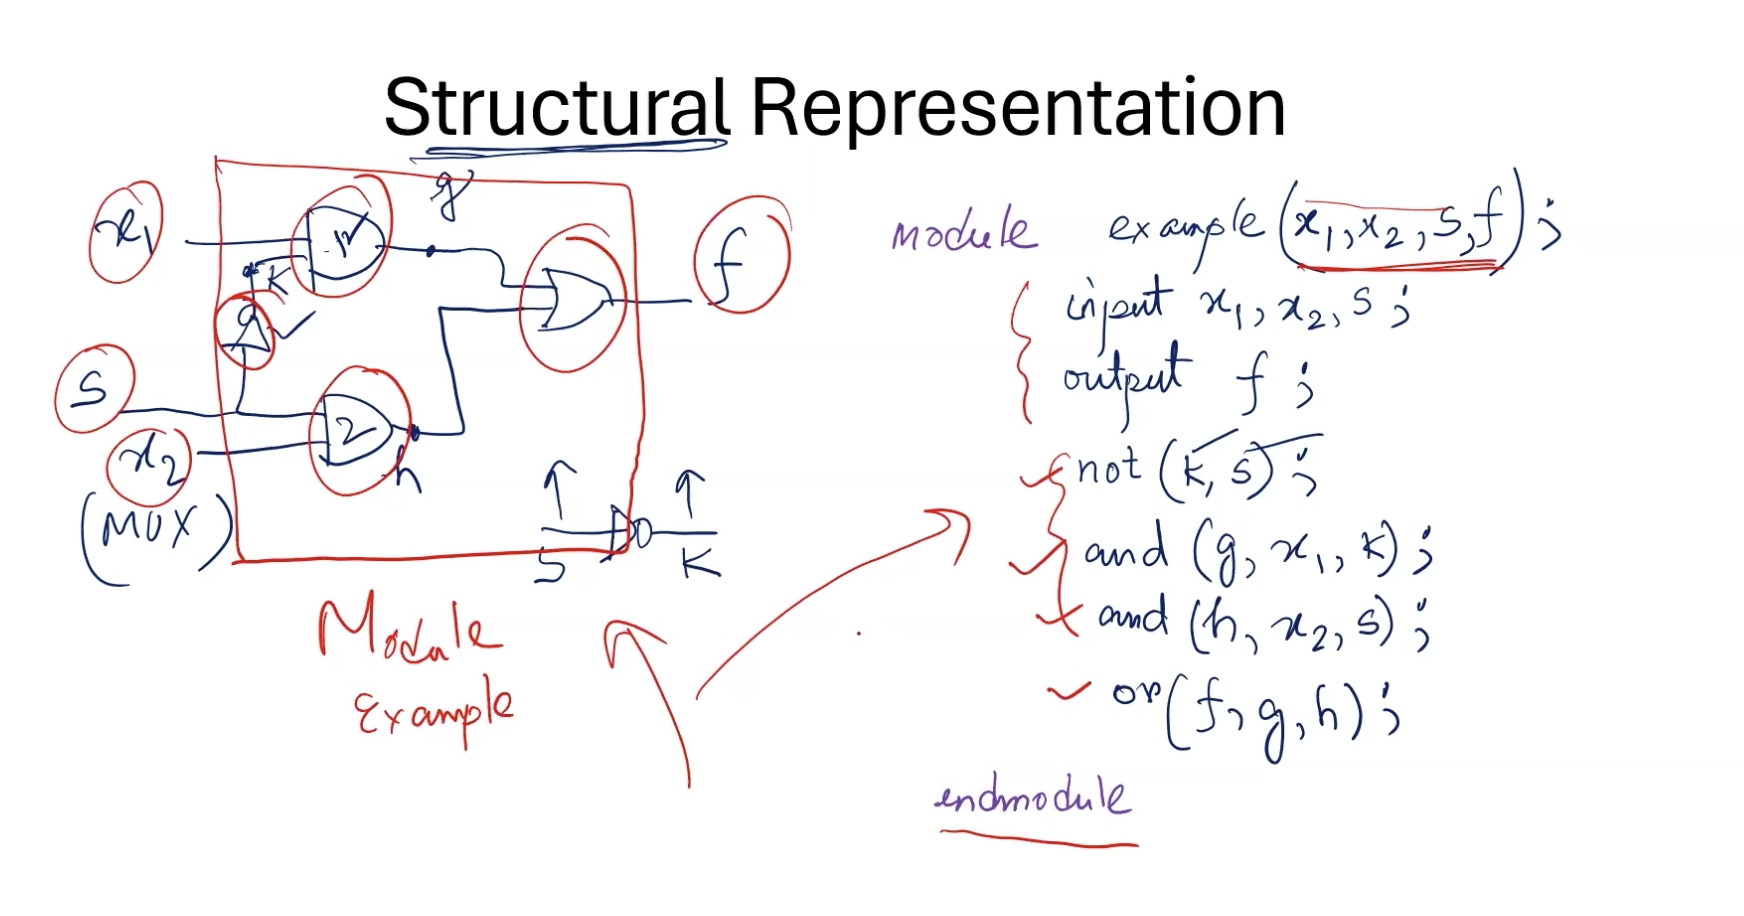 Structural Representation
g
x₁
1
k
f
S
2
x₂
h
(MUX)
S
K
Module
Example
module example (x₁, x₂, S, f);
input x₁, x₂, S;
output f;
not (k, S);
and (g, x₁, k);
and (h, x₂, S);
or (f, g, h);
endmodule